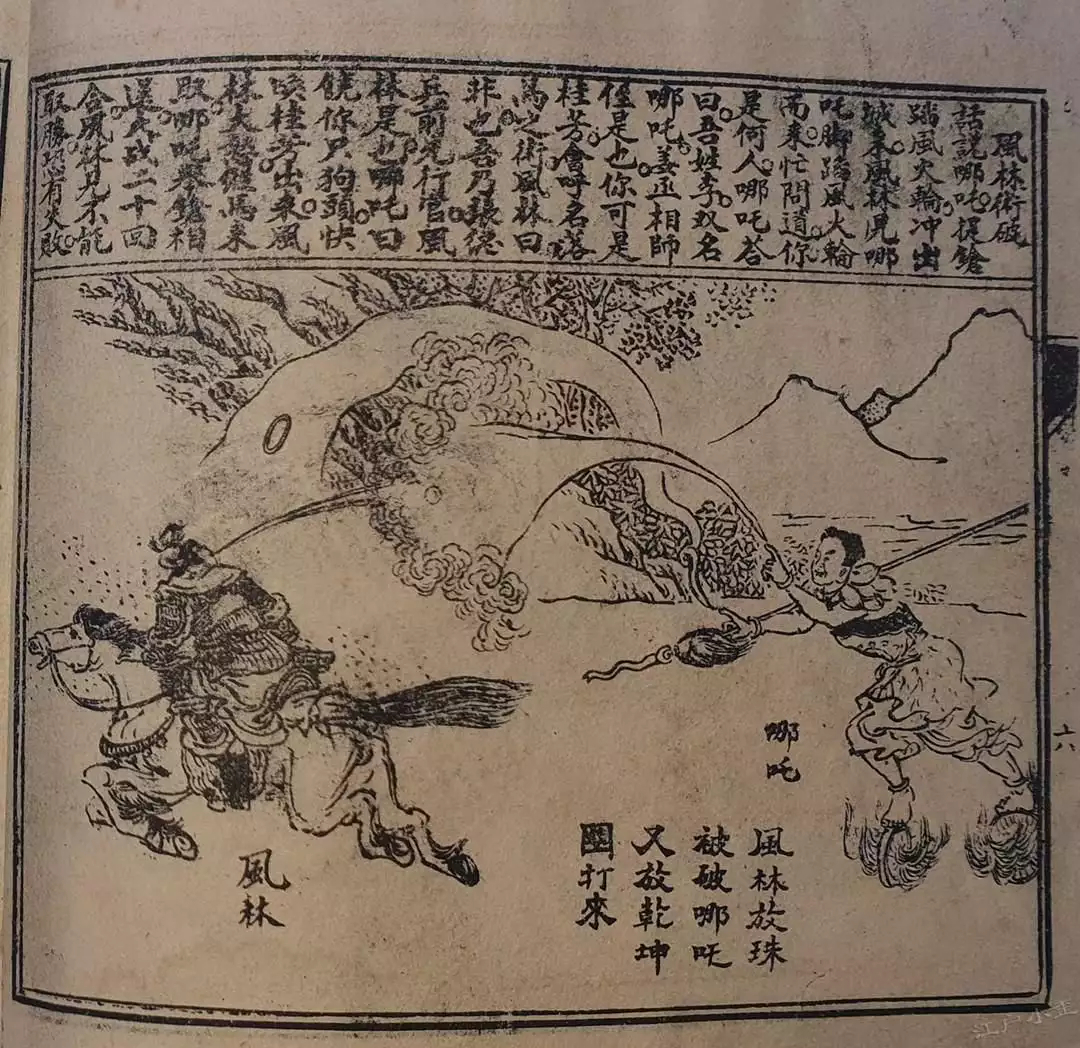 風林術破
話説哪吒提鎗
踏風火輪冲出
城来風林見哪
吒脚踏風火輪
而来忙問道你
是何人。哪吒荅
曰。吾姓李双名
哪吒。姜丞相師
侄是也你可是
桂芳。會呼名落
馬之術。風林曰
非也。吾乃張總
兵前先行官風
林是也。哪吒曰
饒你尸狗頭快
喚桂芳出来。風
林大怒催馬来
取。哪吒舉鎗相
還。大战二十回
合。風林見不能
取勝恐有失敗。
哪吒
風林放珠
被破哪吒
又放乾坤
圈打來
風林
六
江户小生